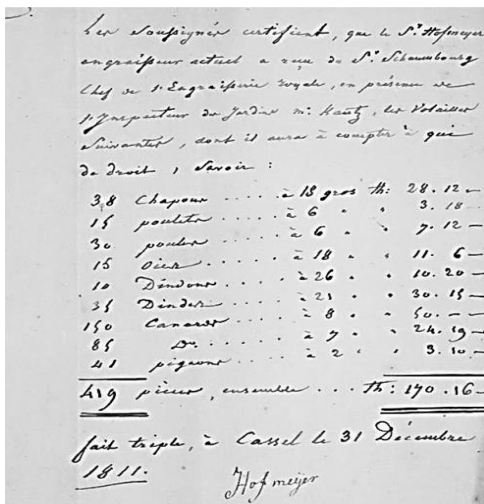 Les soussignés certifient, que le Sr. Hofmeyer
engraisseur actuel a reçu du Sr. Schaumbourg
Chef de l'Engraisserie royale, en présence de
l'Inspecteur du Jardin mr. Kautz, les Volailles
Suivantes, dont il aura à compter à qui
de droit, Savoir :
38 Chapons . . . . à 18 gros th: 28. 12 —
15 poulets . . . . à 6 " " 3. 18 —
30 poules . . . . à 6 " " 7. 12 —
15 Oies . . . . à 18 " " 11. 6 —
10 Dindons . . . . à 26 " " 10. 20 —
35 Dindes . . . . à 21 " " 30. 15 —
150 Canards . . . . à 8 " " 50. — —
85 Do. . . . . à 7 " " 24. 19 —
41 pigeons . . . . à 2 " " 3. 10 —
419 pièces, ensemble . . . Th: 170. 16 —
fait triple, à Cassel le 31 Décembre
1811.
Hofmeijer